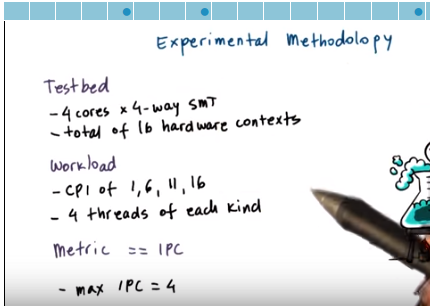 Experimental Methodolopy
Testbed
- 4 cores x 4-way SMT
- total of 16 hardware contexts
Workload
- CPI of 1, 6, 11, 16
- 4 threads of each kind
Metric == IPC
- max IPC = 4